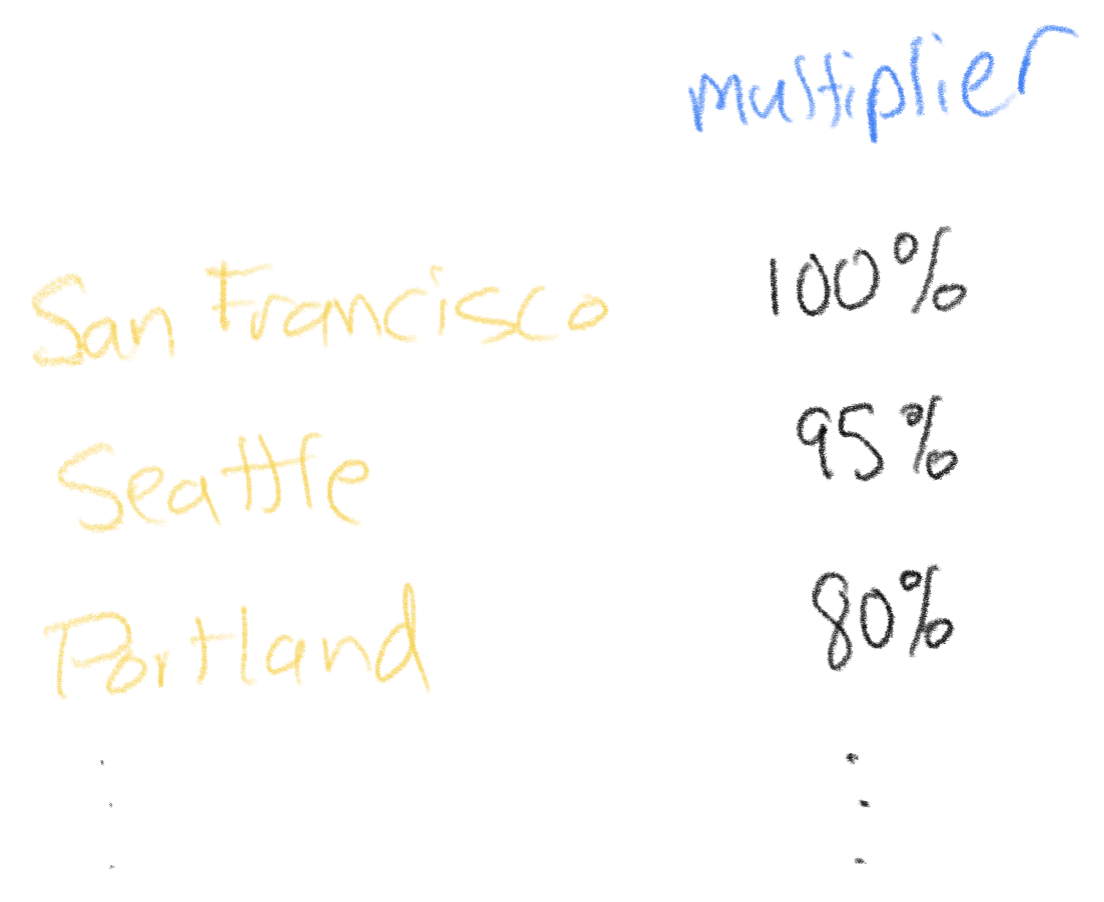 multiplier
San Francisco 100%
Seattle 95%
Portland 80%
. .
. .
. .